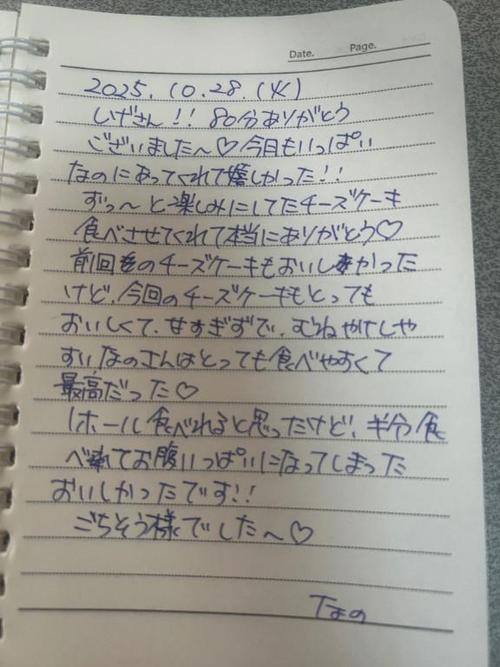 Date. Page.
2025. 10. 28. (火)
しげさん!! 80分ありがとう
ございました〜♡ 今日もいっぱい
なのにあってくれて嬉しかった!!
ずっ〜と楽しみにしてたチーズケーキ
食べさせてくれて本当にありがとう♡
前回のチーズケーキもおいしかった
けど、今回のチーズケーキもとっても
おいしくて、甘すぎずで、むねやけしや
すいなのさんはとっても食べやすくて
最高だった♡
1ホール食べれると思ったけど、半分食
べれてお腹いっぱいになってしまった
おいしかったです!!
ごちそう様でした〜♡
なの